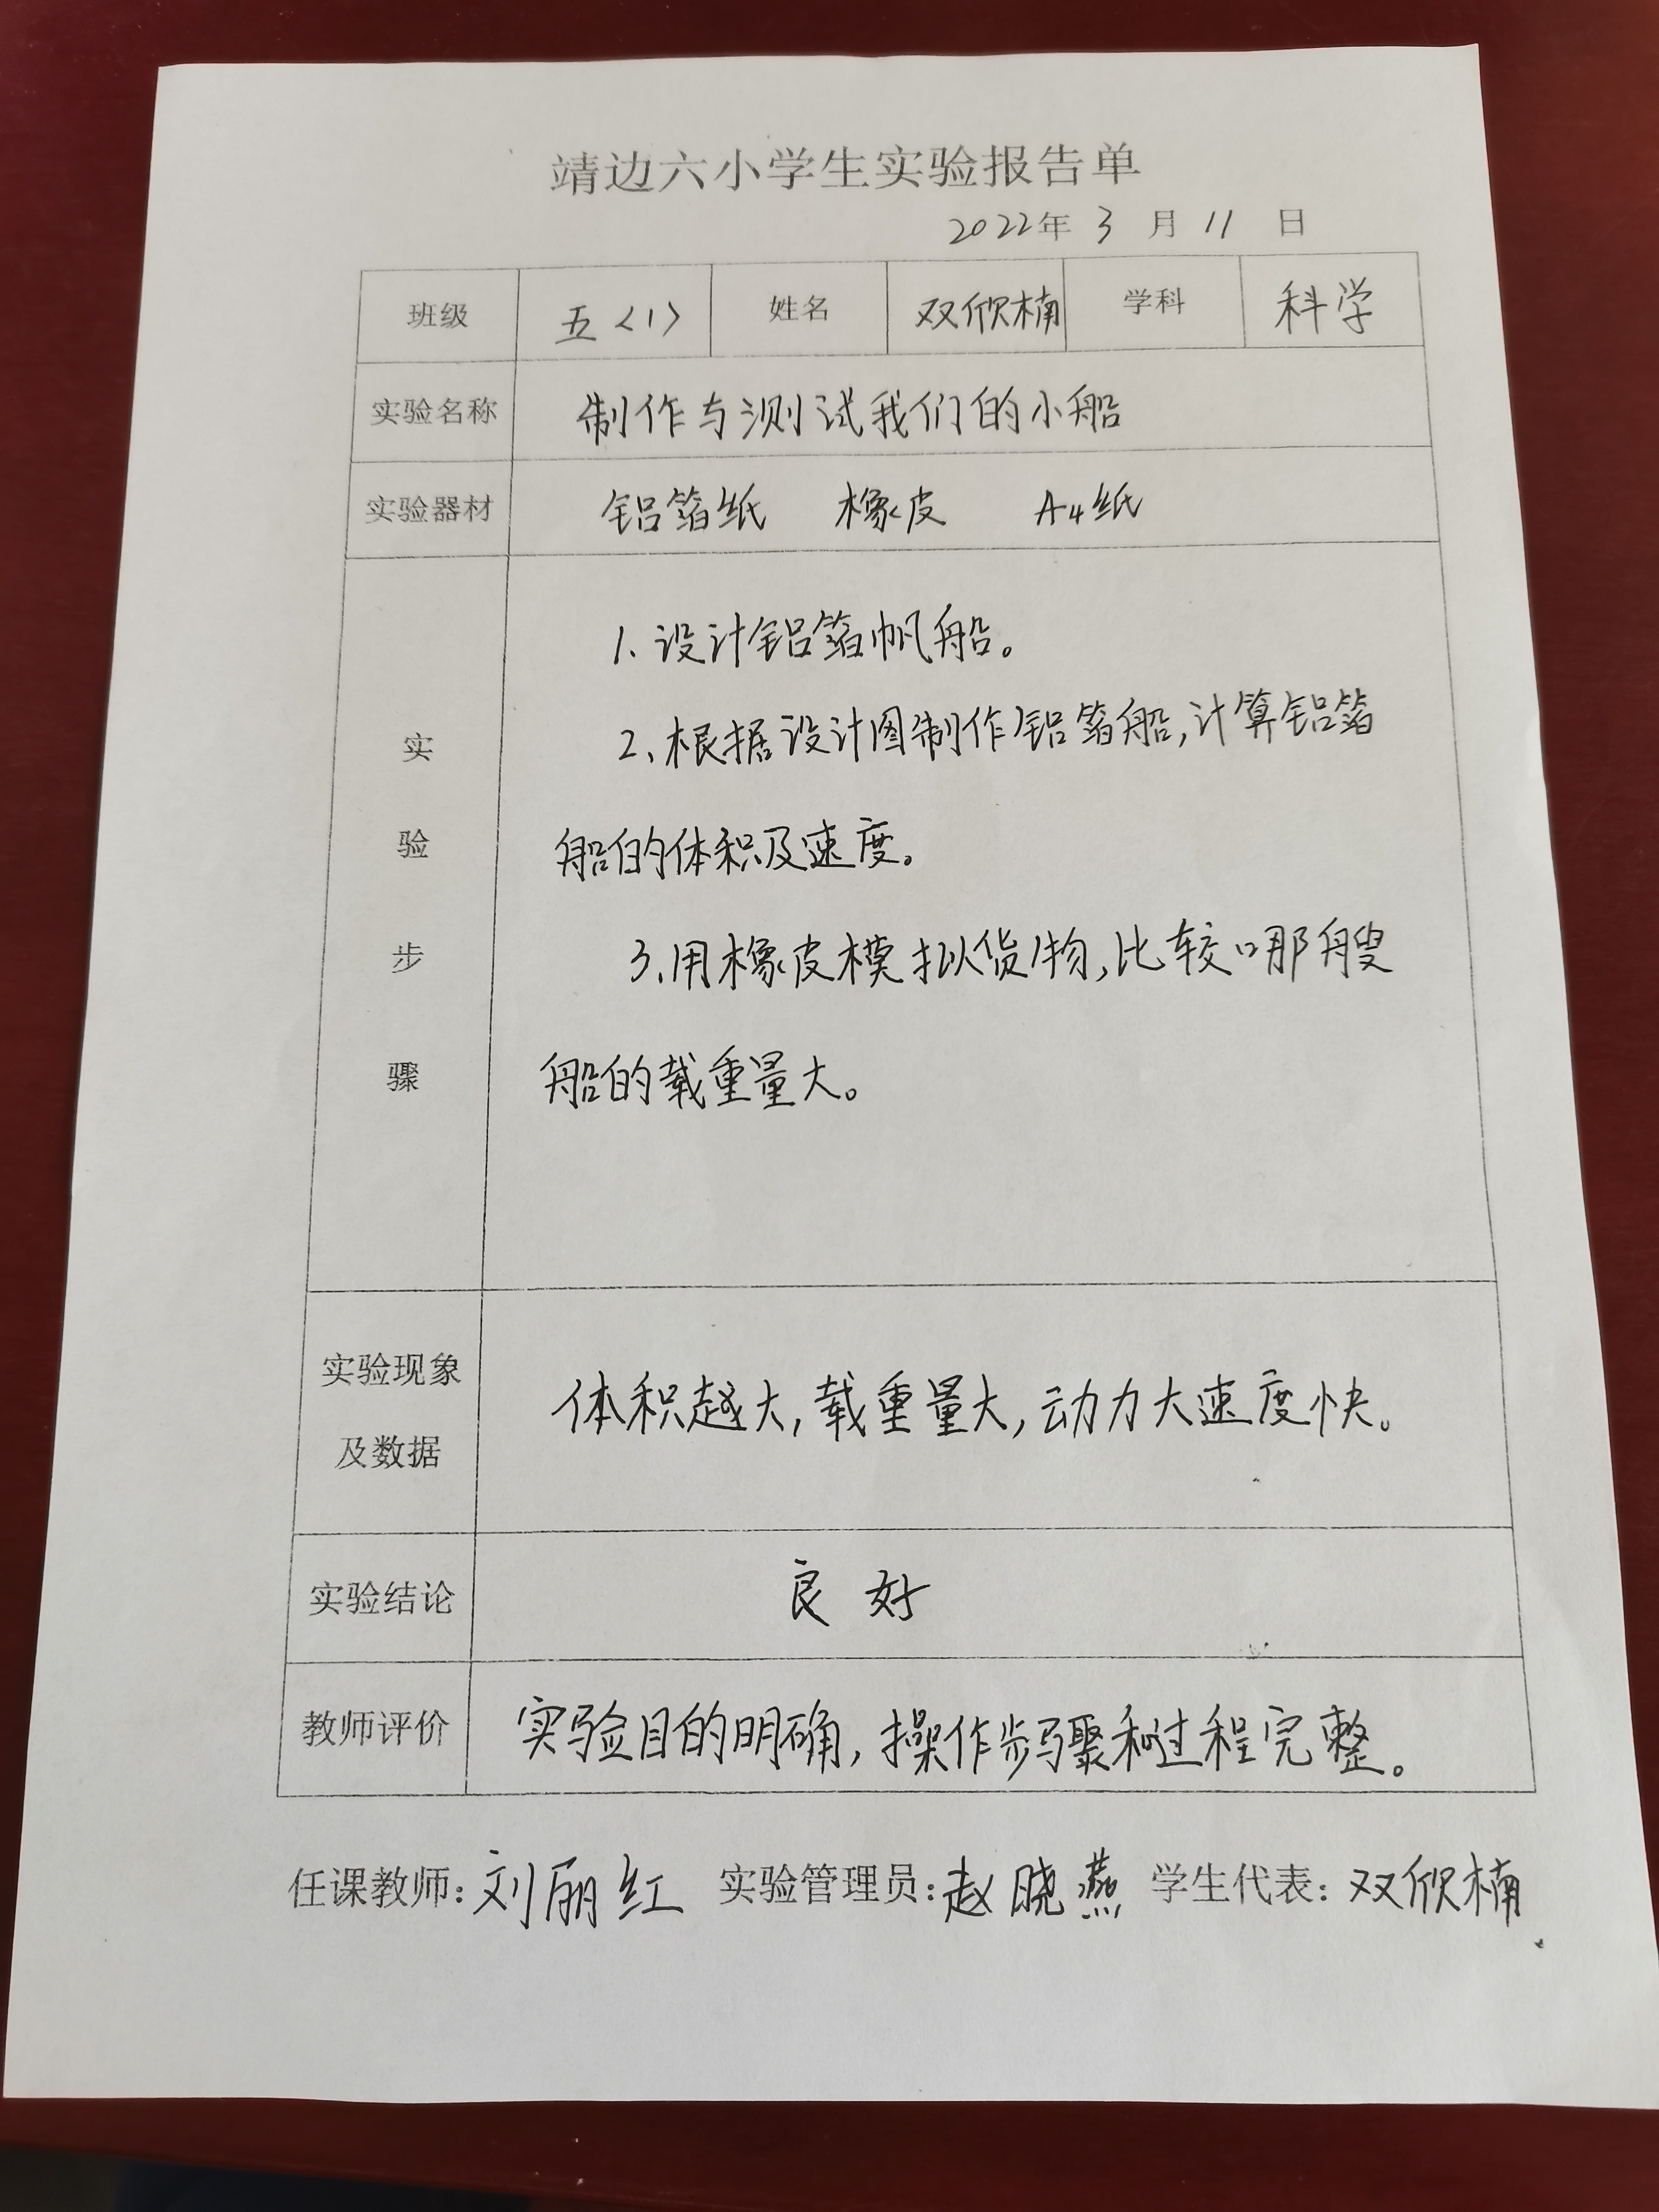 靖边六小学生实验报告单
2022年 3 月 11 日
班级 五<1> 姓名 双欣楠 学科 科学
实验名称 制作与测试我们的小船
实验器材 铝箔纸 橡皮 A4纸
实验步骤
1、设计铝箔帆船。
2、根据设计图制作铝箔船,计算铝箔
船的体积及速度。
3、用橡皮模拟货物,比较哪艘
船的载重量大。
实验现象
及数据
体积越大,载重量大,动力大速度快。
实验结论 良好
教师评价 实验目的明确,操作步骤和过程完整。
任课教师:刘丽红 实验管理员:赵晓燕 学生代表:双欣楠